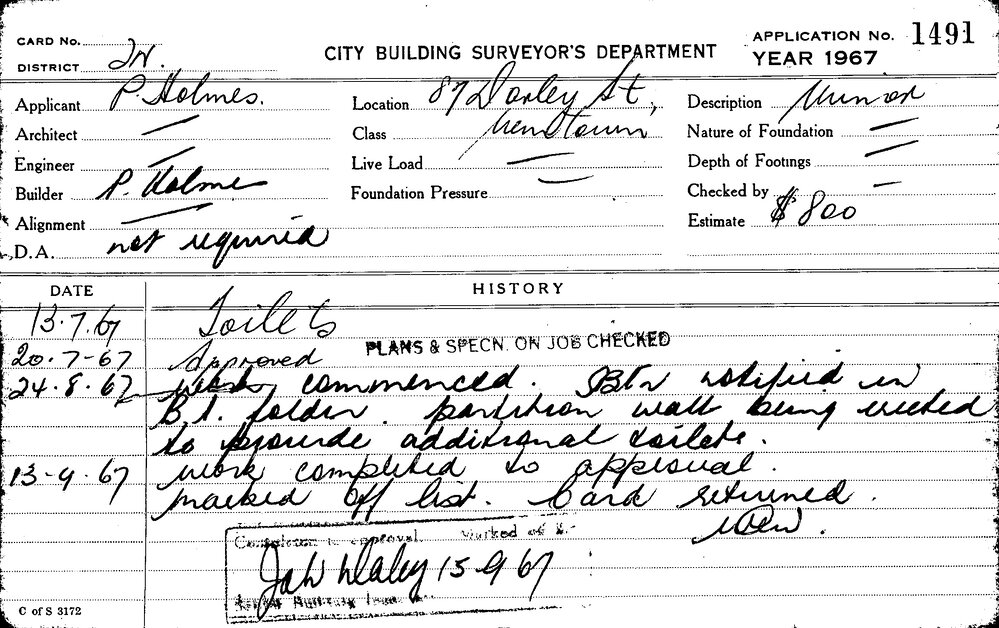 CARD No.
DISTRICT 2N.
CITY BUILDING SURVEYOR'S DEPARTMENT
APPLICATION No. 1491
YEAR 1967
Applicant P. Holmes.
Location 87 Darley St,
Description Minor
Architect —
Class Newtown
Nature of Foundation —
Engineer —
Live Load —
Depth of Footings —
Builder P. Holmes
Foundation Pressure —
Checked by —
Alignment —
Estimate $800
D.A. not required
DATE
HISTORY
13.7.67 Toilets
20.7-67 Approved PLANS & SPECN. ON JOB CHECKED
24.8.67 work commenced. Bldr notified in
B.I. folder. partition wall being erected
to provide additional toilets.
13-9.67 work completed to approval.
marked off list. Card returned.
Completed to approval. Marked off
Daley 15-9-67
C of S 3172